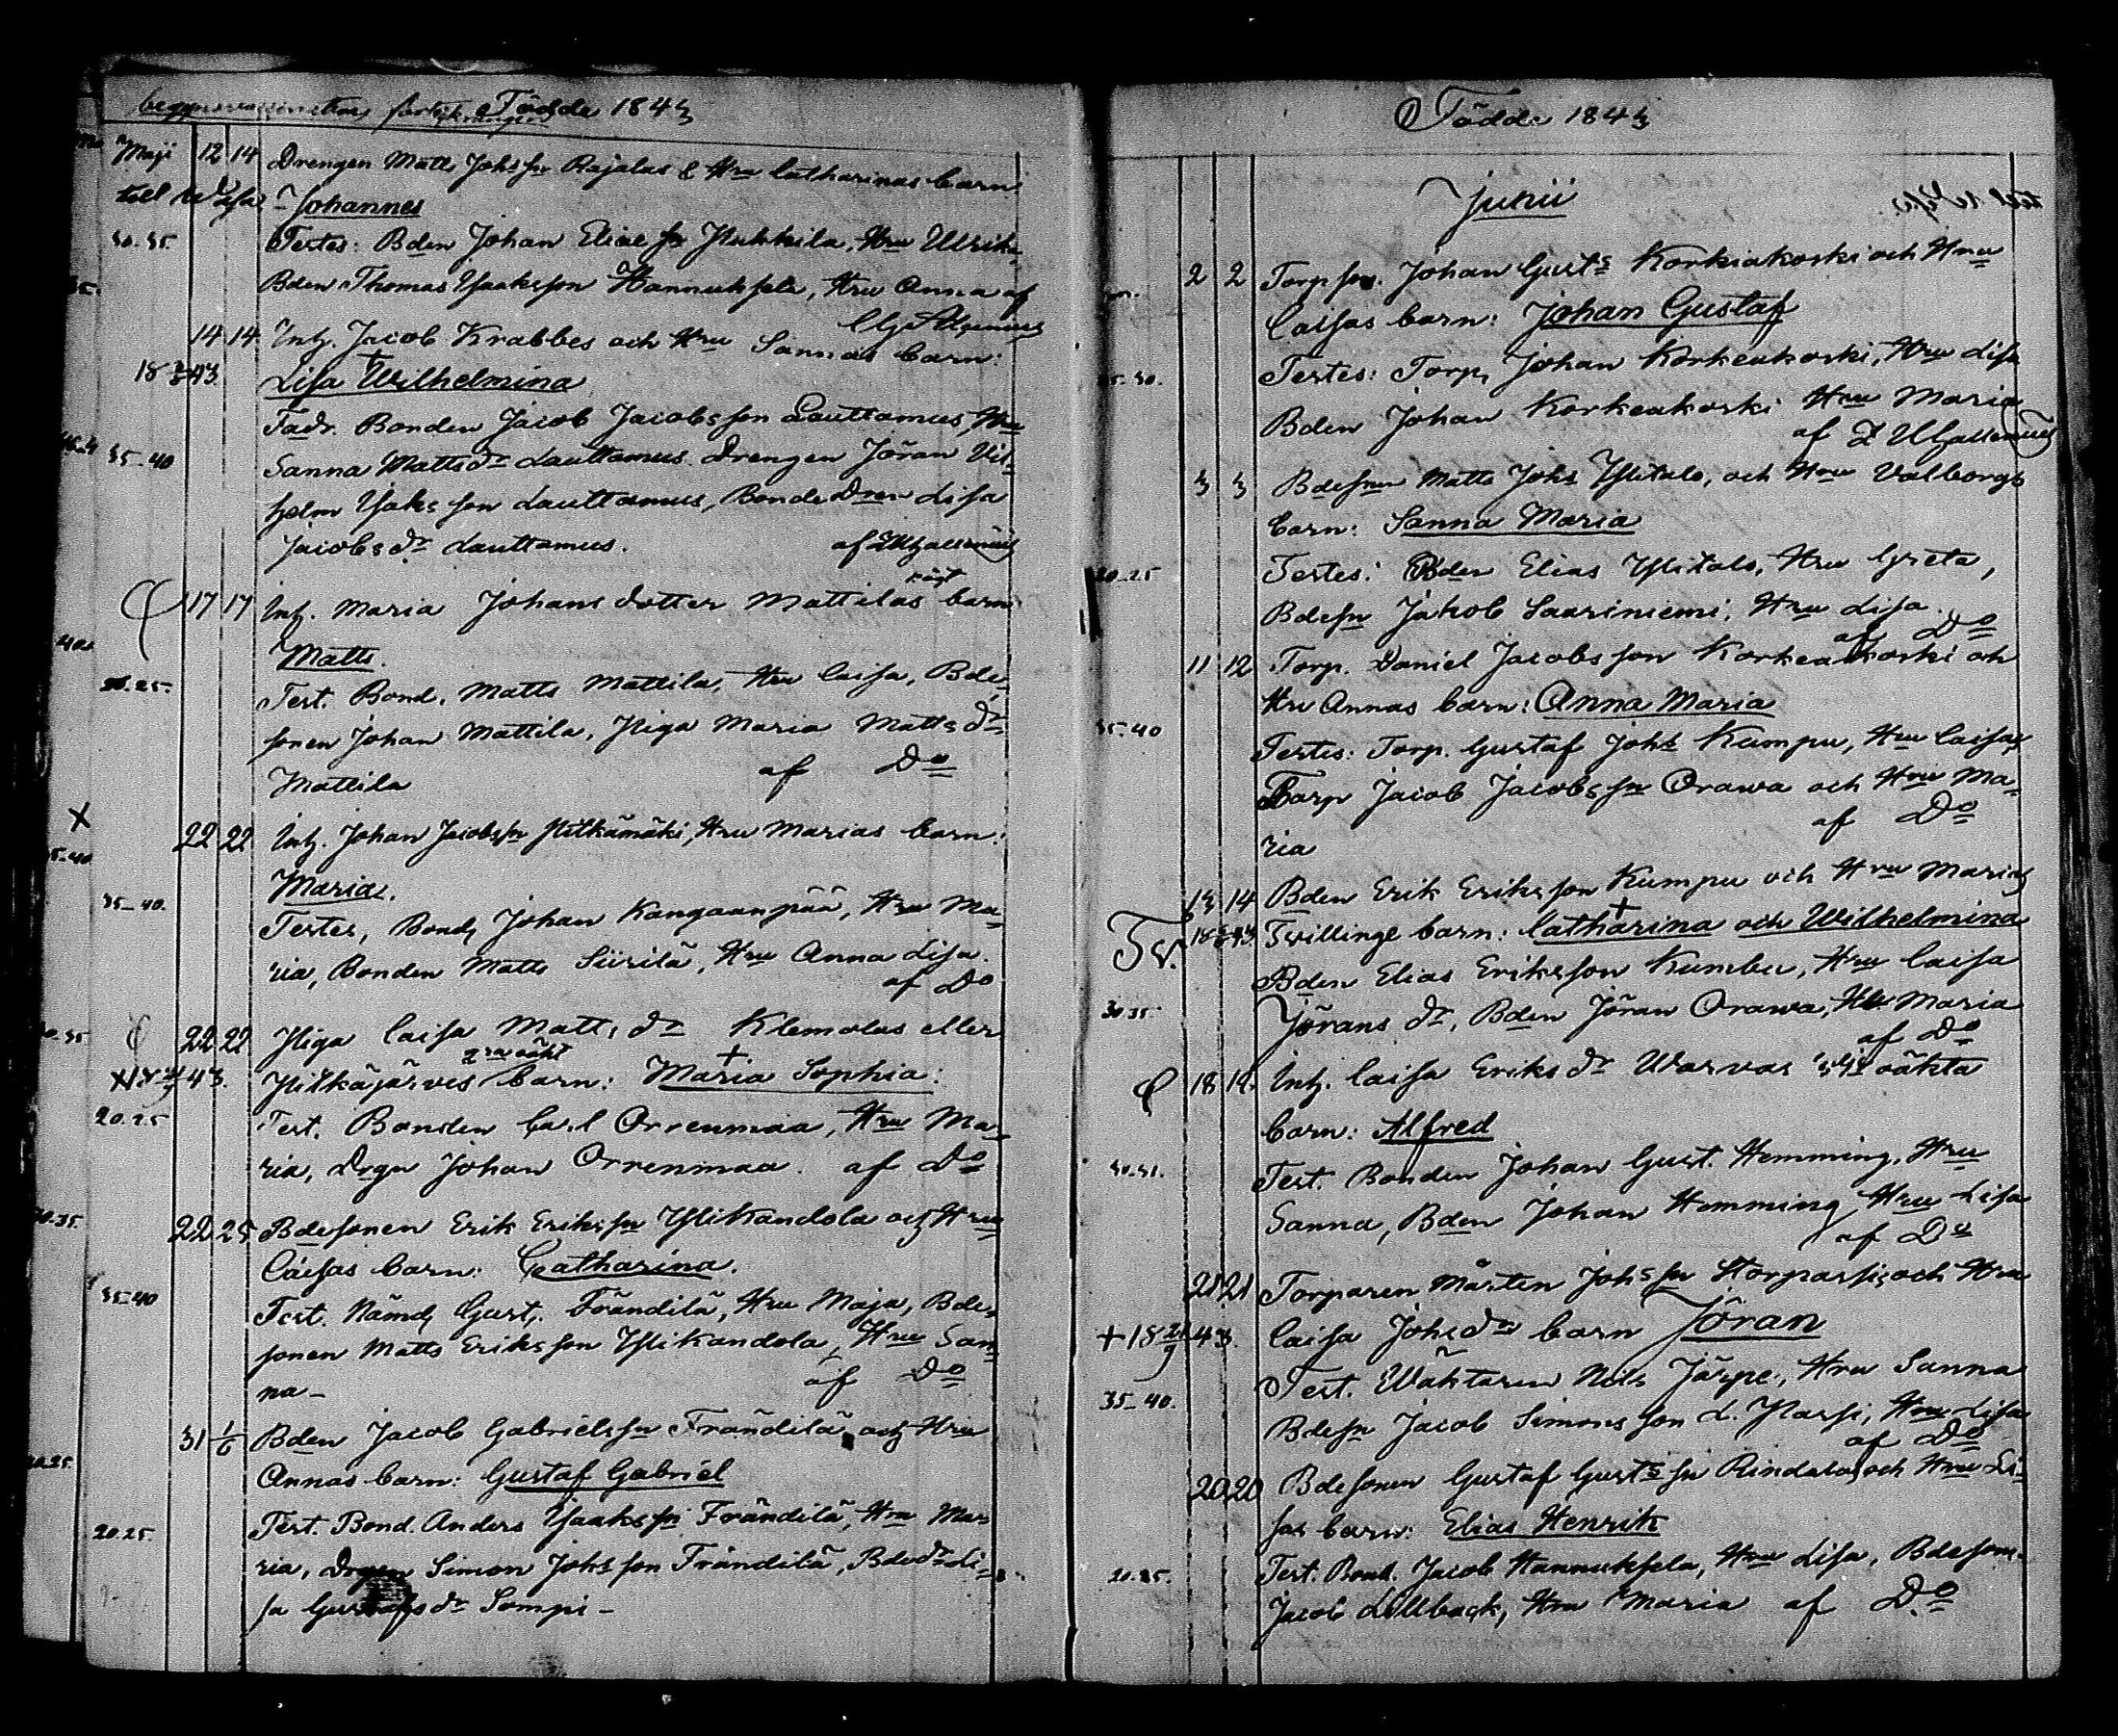 Födde 1843
Maji 12 14 Drengen Matts Johs sn Rajalas & Hru Catharinas barn
Johannes
30-35. Testes: Bden Johan Eliae sn Hru Ulrika
Bden Thomas Isaaksson Hannuksela, Hru Anna af
14 14 Inh. Jacob Krabbes och Hru Sannas barn:
18 43. Lisa Wilhelmina +
Fadr. Bonden Jacob Jacobsson Lauttamus, Hru
35-40 Sanna Matts dr Lauttamus. Drengen Jöran Vil-
helm Isaks son Lauttamus, Bonde Dren Lisa
Jacobs dr Lauttamus. af
17 17 Inh. Maria Johans dotter Mattilas oägt barn
Matts.
20.25. Test. Bond. Matts Mattila, Hru Caisa, Bde-
sonen Johan Mattila, Piga Maria Matts dr
Mattila af Do
X 22 22 Inh. Johan Jacobssn Pitkämäki, Hru Marias barn:
Maria.
35-40. Testes, Bond. Johan Kangaanpää, Hru Ma-
ria, Bonden Matts Siirilä, Hru Anna Lisa.
af Do
22 22 Piga Caisa Matts dr Klemolas eller
43. Pitkäjärvis 2 ra oäkt barn: Maria Sophia: +
20.25 Test. Bonden Carl Orrenmaa, Hru Ma-
ria, Drgn Johan Orrenmaa. af Do
22 25 Bdesonen Erik Eriks sn Ylikandola och Hru
Caisas barn: Catharina.
35-40 Test. Nämd. Gust. Frändilä, Hru Maja, Bde-
sonen Matts Eriksson Ylikandola, Hru San-
na - af Do
31 1/6 Bden Jacob Gabrielssn Frändilä och Hru
Annas barn: Gustaf Gabriel
20.25. Test. Bond. Anders Isaaks sn Frändilä, Hru Ma-
ria, Drgen Simon Johs son Frändilä, Bde dr Li-
sa Gustafs dr Sompi -
Födde 1843
Junii
2 2 Torp sn. Johan Gusts Korkiakoski och Hru
Caisas barn: Johan Gustaf
Testes: Torp. Johan Korkeakoski, Hru Lisa
Bden Johan Korkeakoski Hru Maria
af
3 3 Bdesnen Matts Johs Ylitalo, och Hru Valborgs
barn: Sanna Maria
20-25 Testes: Bden Elias Ylitalo, Hru Greta,
Bdesn Jakob Saariniemi, Hru Lisa.
af Do
11 12 Torp. Daniel Jacobsson Korkeakoski och
Hru Annas barn: Anna Maria
35-40 Testes: Torp. Gustaf Johs Kumpu, Hru Caisa
Torp Jacob Jacobs sn Orawa och Hru Ma-
ria af Do
13 14 Bden Erik Eriksson Kumpu och Hru Marias
Tv. 18 43. Tvillinge barn: Catharina + och Wilhelmina
Bden Elias Eriksson Kumbu, Hru Caisa
30.35. Jörans dr, Bden Jöran Orawa, H. Maria
af Do
18 19. Inh. Caisa Eriks dr Warvas oäkta
barn: Alfred
Test. Bonden Johan Gust. Hemming, Hru
Sanna, Bden Johan Hemming Hru Lisa
af Do
21 21 Torparen Mårten Johs sn och Hru
+ 18 21/9 43. Caisa Johs dr barn Jöran
Test. Wäktaren Nils Järpe, Hru Sanna
35-40. Bdesn Jacob Simons son L. Passi, Hru Lisa
af Do
20 20 Bdesonen Gustaf Gusts sn Rindalas och Hru Li-
sas barn: Elias Henrik
Test. Bond. Jacob Hannuksela, Hru Lisa, Bdeson.
Jacob Lillback, Hru Maria af Do